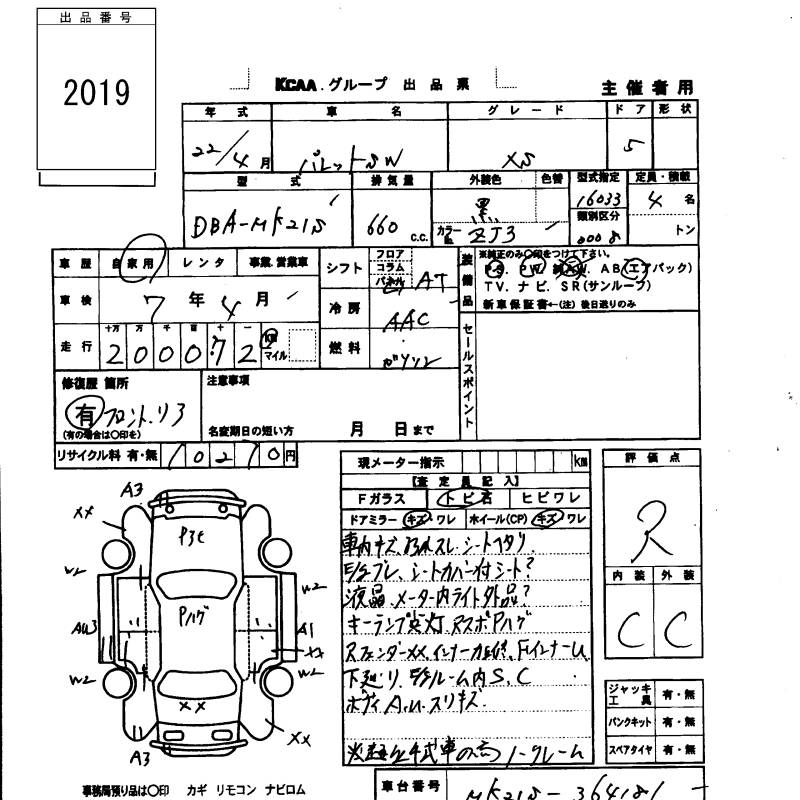 出品番号
2019
KCAA.グループ 出品票
主催者用
年式 車名 グレード ドア 形状
22/4月 パレットSW XS 5
型式 排気量 外装色 色替 型式指定 定員・積載
DBA-MK21S 660 c.c. 黒 16033 4 名
カラー ZJ3 類別区分 0008 トン
車歴 自家用 レンタ 事業.営業車
シフト フロア コラム パネル AT
装備品 ※純正のみ○印をつけて下さい。
P.S. P.W. A B (エアバック)
TV. ナビ. SR(サンルーフ)
新車保証書←(注) 後日送りのみ
車検 7年4月
冷房 AAC
走行 十万 万 千 百 十 一
200072 KM マイル
燃料 ガソリン
セールスポイント
修復歴 箇所
有 フロント.リア
(有の場合は○印を)
注意事項
名変期日の短い方 月 日まで
リサイクル料 有・無 10270円
現メーター指示 KM
【査定員記入】
Fガラス トビ石 ヒビワレ
ドアミラー キズ・ワレ ホイール(CP) キズ・ワレ
評価点
R
内装 外装
C C
車内キズ.スレ.シートヘタリ
E/gブレ、シートカバー付シート?
液晶.メーター内ライト外品?
キーランプ点灯.RスポPハゲ
RフェンダーXX.インナー
下廻リ.E/gルーム内S.C
ボディA.U.スリキズ
ノークレーム
A3
XX
P3E
W2
W2
Pハゲ
AW3
A1
XX
W2
W2
XX
XX
A3
ジャッキ 工具 有・無
パンクキット 有・無
スペアタイヤ 有・無
事務局預り品は○印 カギ リモコン ナビロム
車台番号 MK21S-364181